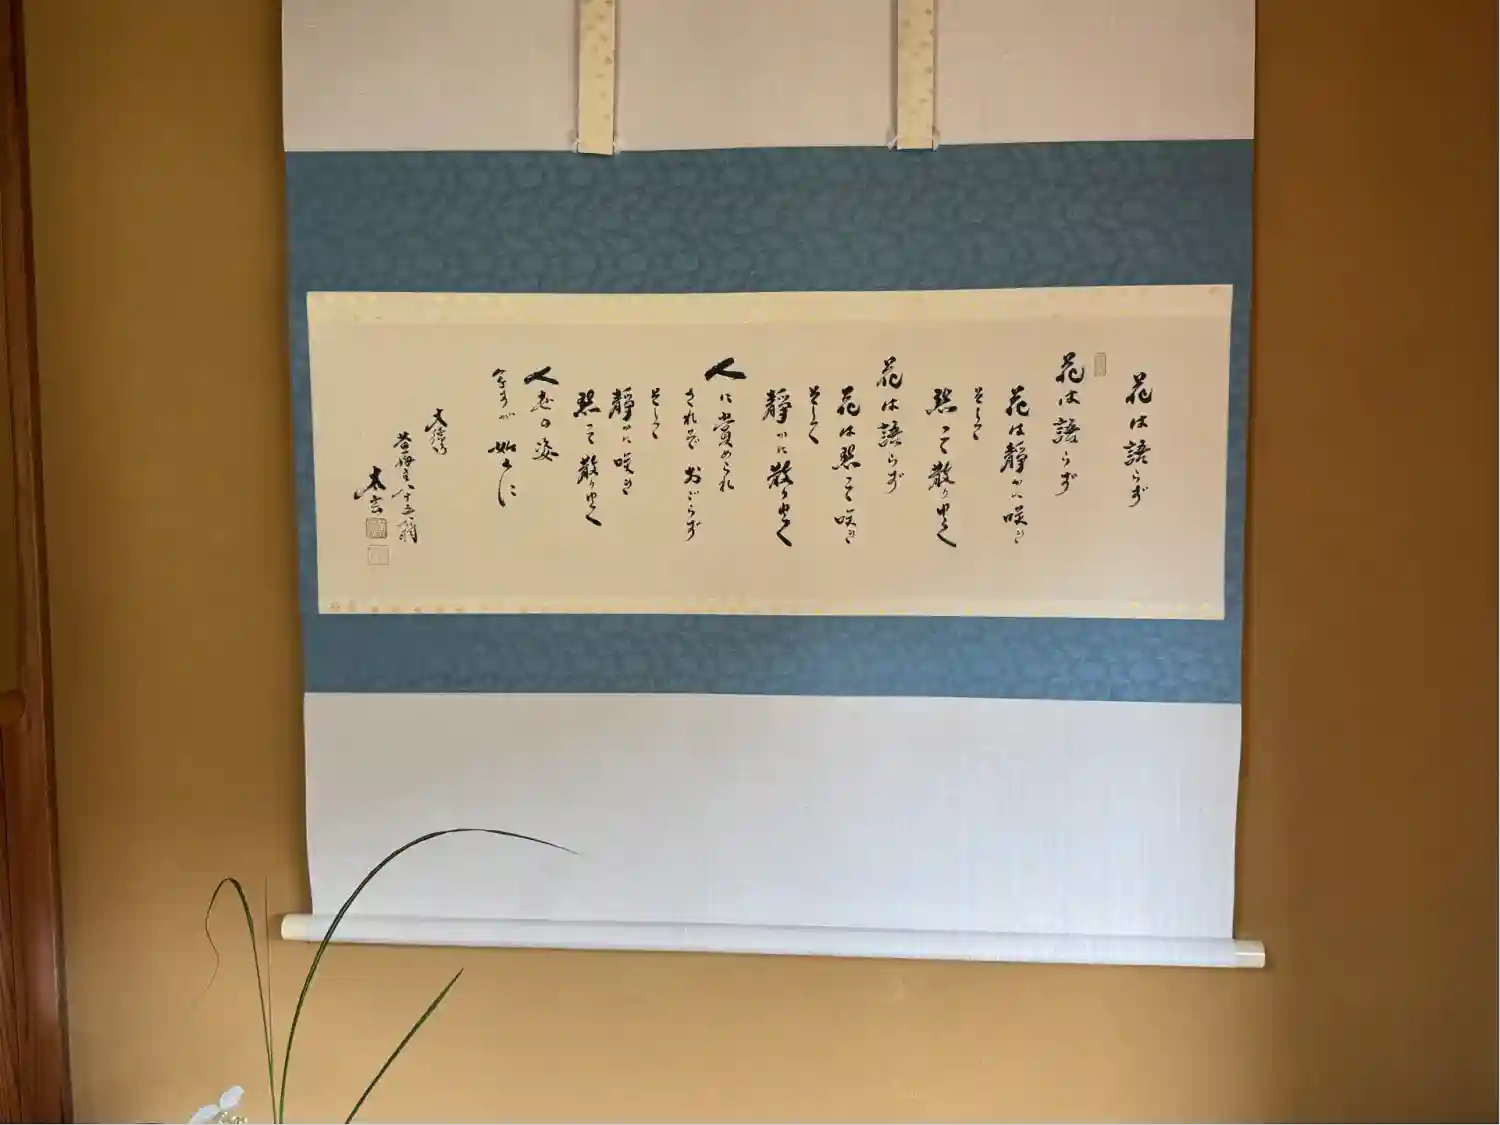 花は語らず
花は語らず
花は静かに咲き
そして
黙って散りゆく
花は語らず
花は黙って咲き
そして
静かに散りゆく
人に賞められ
されどおごらず
そして
静かに咲き
黙って散りゆく
人の姿
如くに
八十五翁
太玄